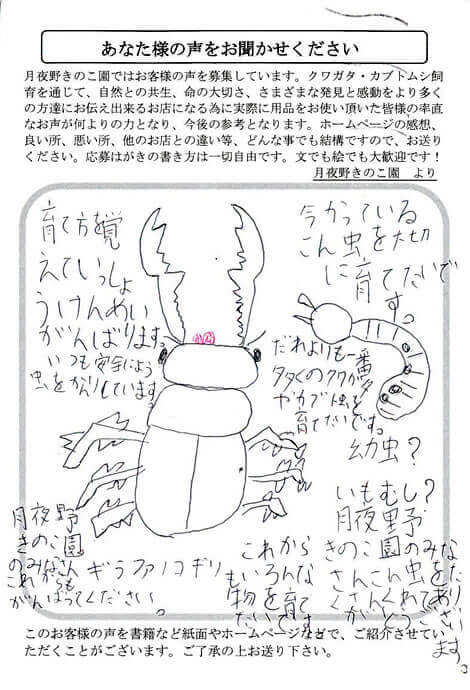 あなた様の声をお聞かせください
月夜野きのこ園ではお客様の声を募集しています。クワガタ・カブトムシ飼
育を通じて、自然との共生、命の大切さ、さまざまな発見と感動をより多く
の方達にお伝え出来るお店になる為に実際に用品をお使い頂いた皆様の率直
なお声が何よりの力となり、今後の参考となります。ホームページの感想、
良い所、悪い所、他のお店との違い等、どんな事でも結構ですので、お送り
ください。応募はがきの書き方は一切自由です。文でも絵でも大歓迎です！
月夜野きのこ園　より
育て方を覚
えていっしょ
うけんめい
がんばります。
いつも安全によう
虫をかりしています。
今かっている
こん虫を大切
に育てたいで
す。
だれよりも一番
多くのクワガタ
やカブト虫を
育てたいです。
幼虫？
いもむし？
月夜野
きのこ園のみな
さんこん虫を
たくさんくれて
ありがとうござい
ます。
これから
もいろんな
物を育て
たいです。
ギラファノコギリ
月夜野
きのこ園
のみなさん
これからも
がんばってください
このお客様の声を書籍など紙面やホームページなどで、ご紹介させてい
ただくことがございます。ご了承の上お送り下さい。